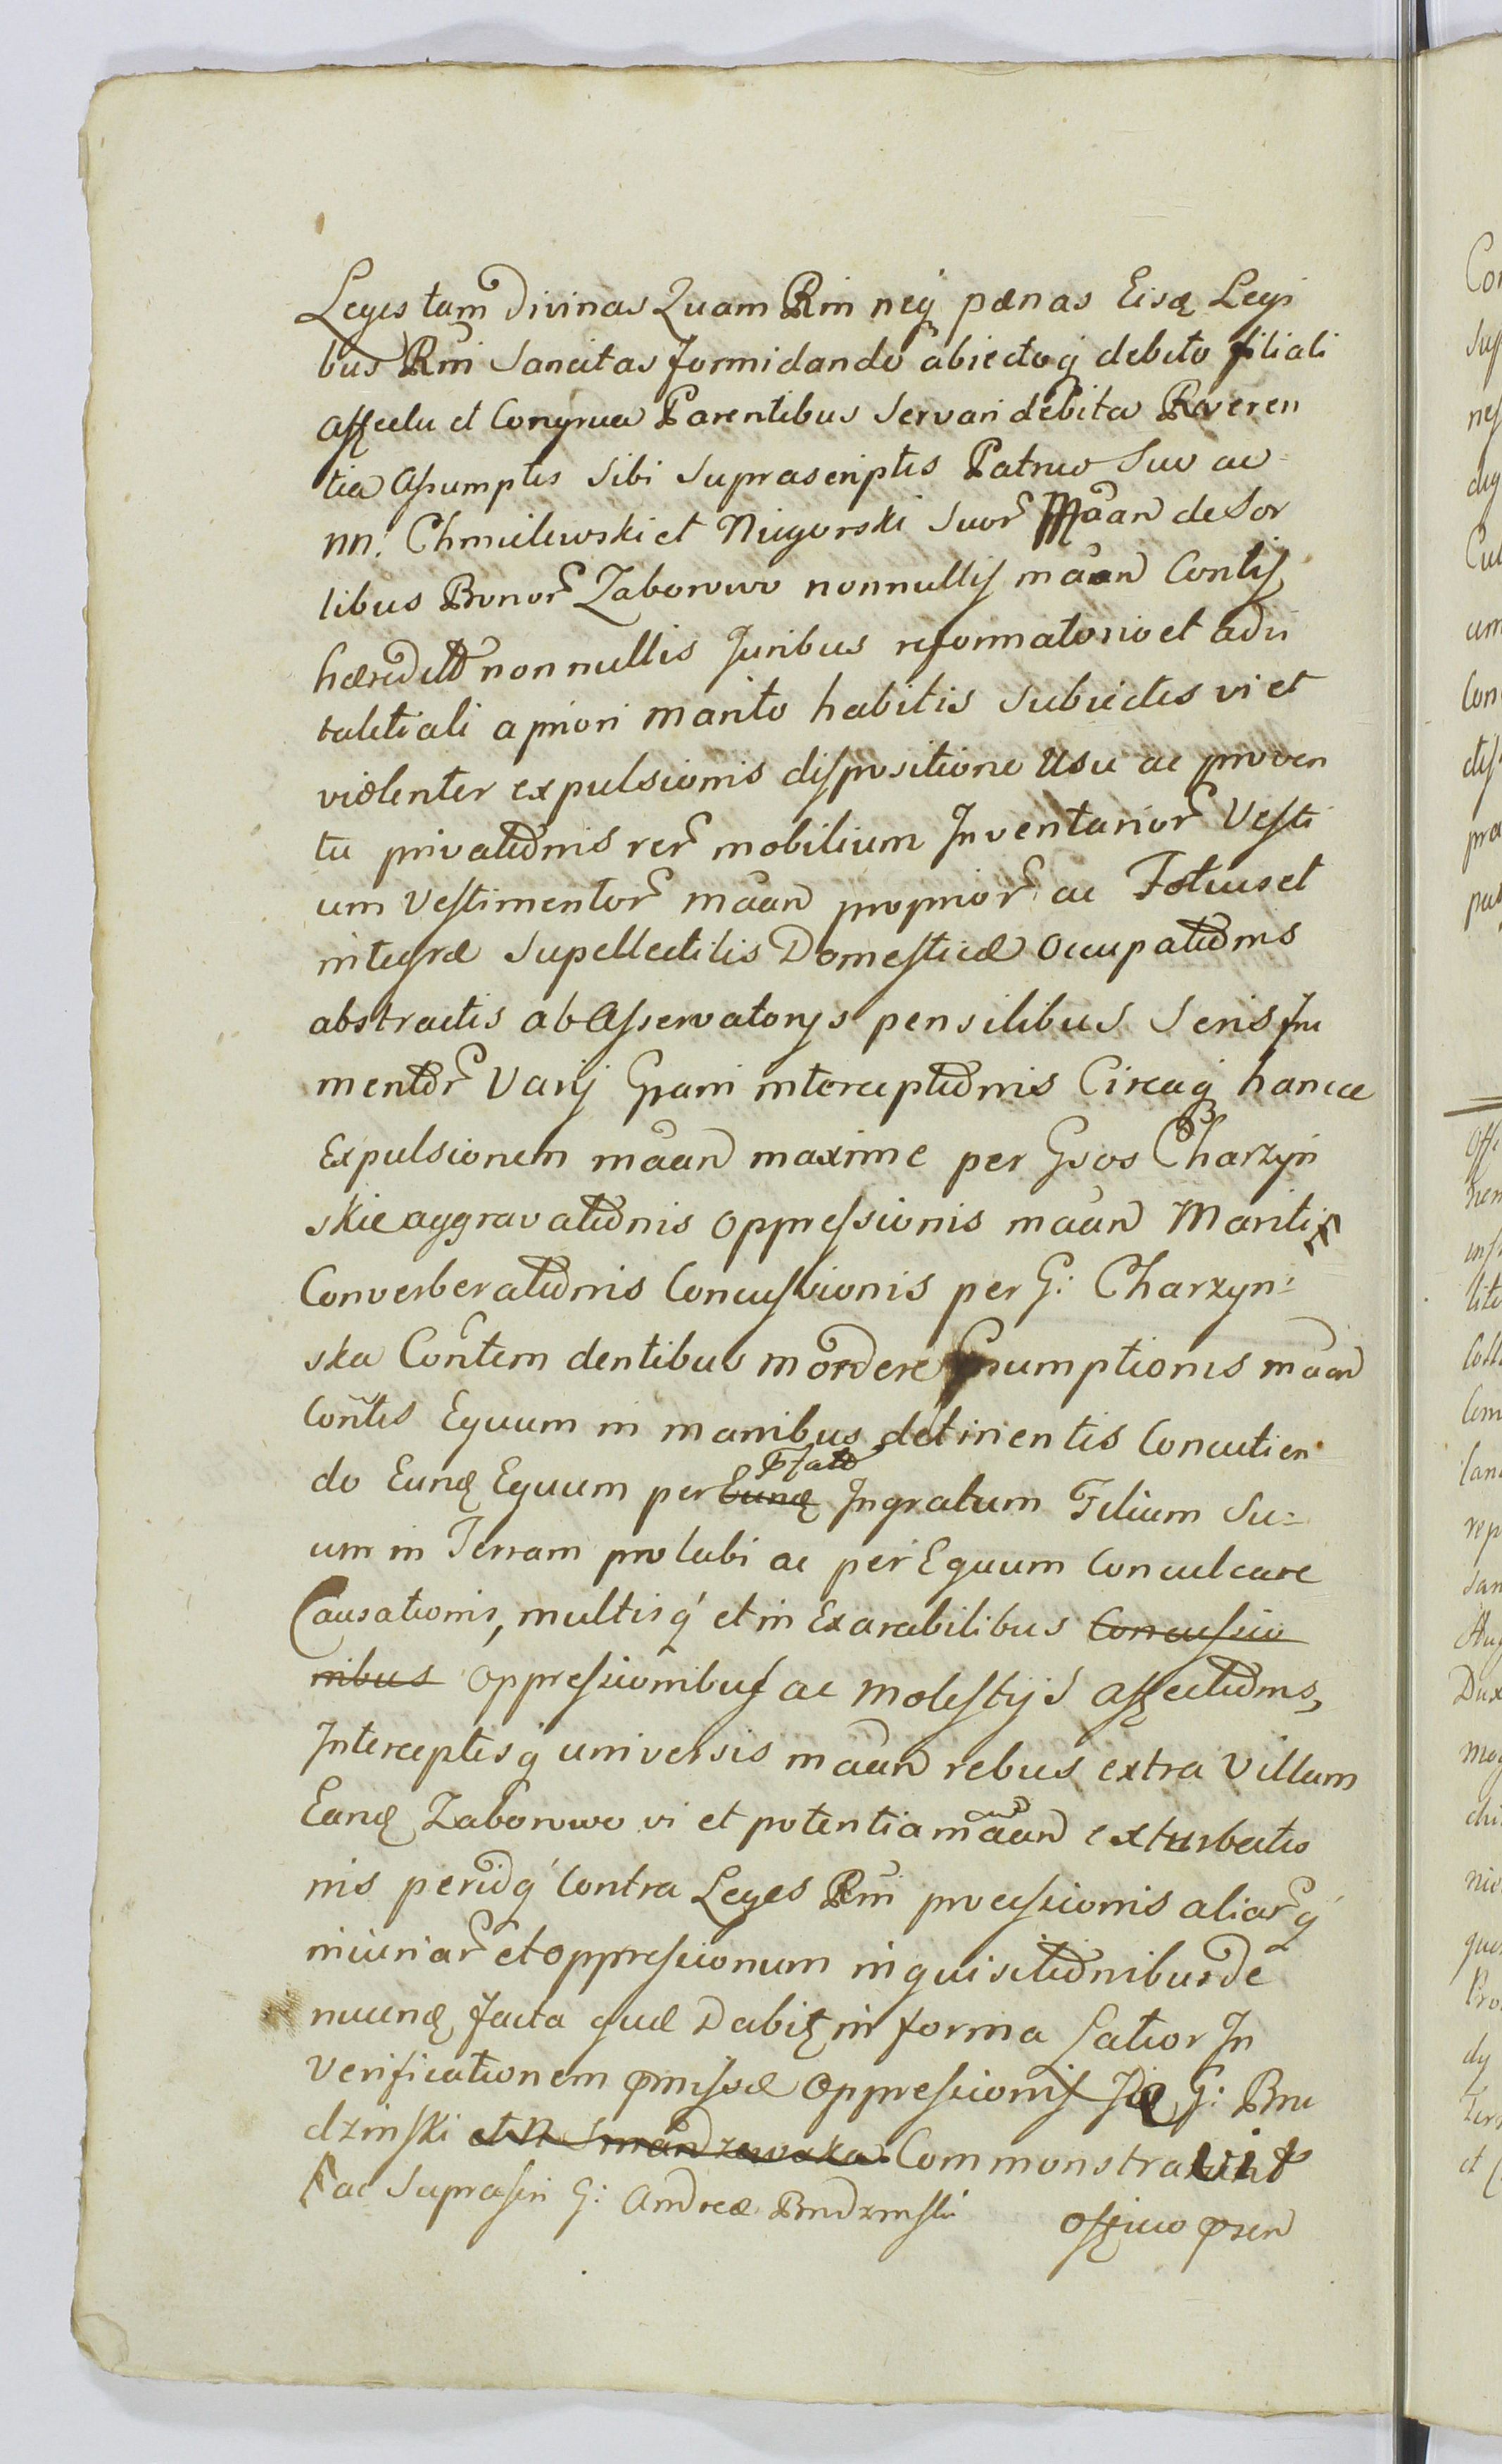 Leges tam Divinas Quam Rni neq pænas Eisq Legi
bus Rni Sancitas formidando abiectoq debito filiali
affectu et Congrua Parentibus Servari debita Reveren
tia Assumptis Sibi Suprascriptis Patruo Suo ac
nn: Chmielewski et Niegorski Suor Maan de Sor
tibus Bonor Zaborowo nonnullis maan Contis
hæredit nonnullis Juribus reformatorio et advi
talitiali a priori marito habitis Subiectis vi et
violenter expulsionis dispositione Usu ac proven
tu privationis rer mobilium Inventarior Vesti
um Vestimentor maan proprior ac Totius et
integræ Supellectilis Domesticæ Occupationis
abstractis ab Asservatorijs pensilibus Seris fru
mentor Varij Grani interceptionis Circaq hance
Expulsionem maan maxime per Gsos Charzyn
skie aggravationis oppressionis maan Mariti
Converberationis Concussionis per G: Charzyn:
ska Contem dentibus mordere præsumptionis maan
Contis Equum in manibus detinentis Concutien
do Eunq Equum per Eunq Ingratum Filium Su=
um in Terram prolabi ac per Equum Conculcare
Causationis, multisq et in Exarabilibus Concussio
nibus oppressionibus ac molestijs affectionis,
Interceptisq universis maan rebus extra Villam
Eanq Zaborowo vi et potentia maan exturbatio
nis peridq Contra Leges Rni processionis aliarq
iniuriar et oppressionum inquisitionibus de
nuunq facta quæ Dabit in forma Latior In
Verificationem pmissæ Oppressionis Idq G: Bru
dzinski et N Commonstravit
ac Suprascri G: Andreæ Brudzinski officio prsen